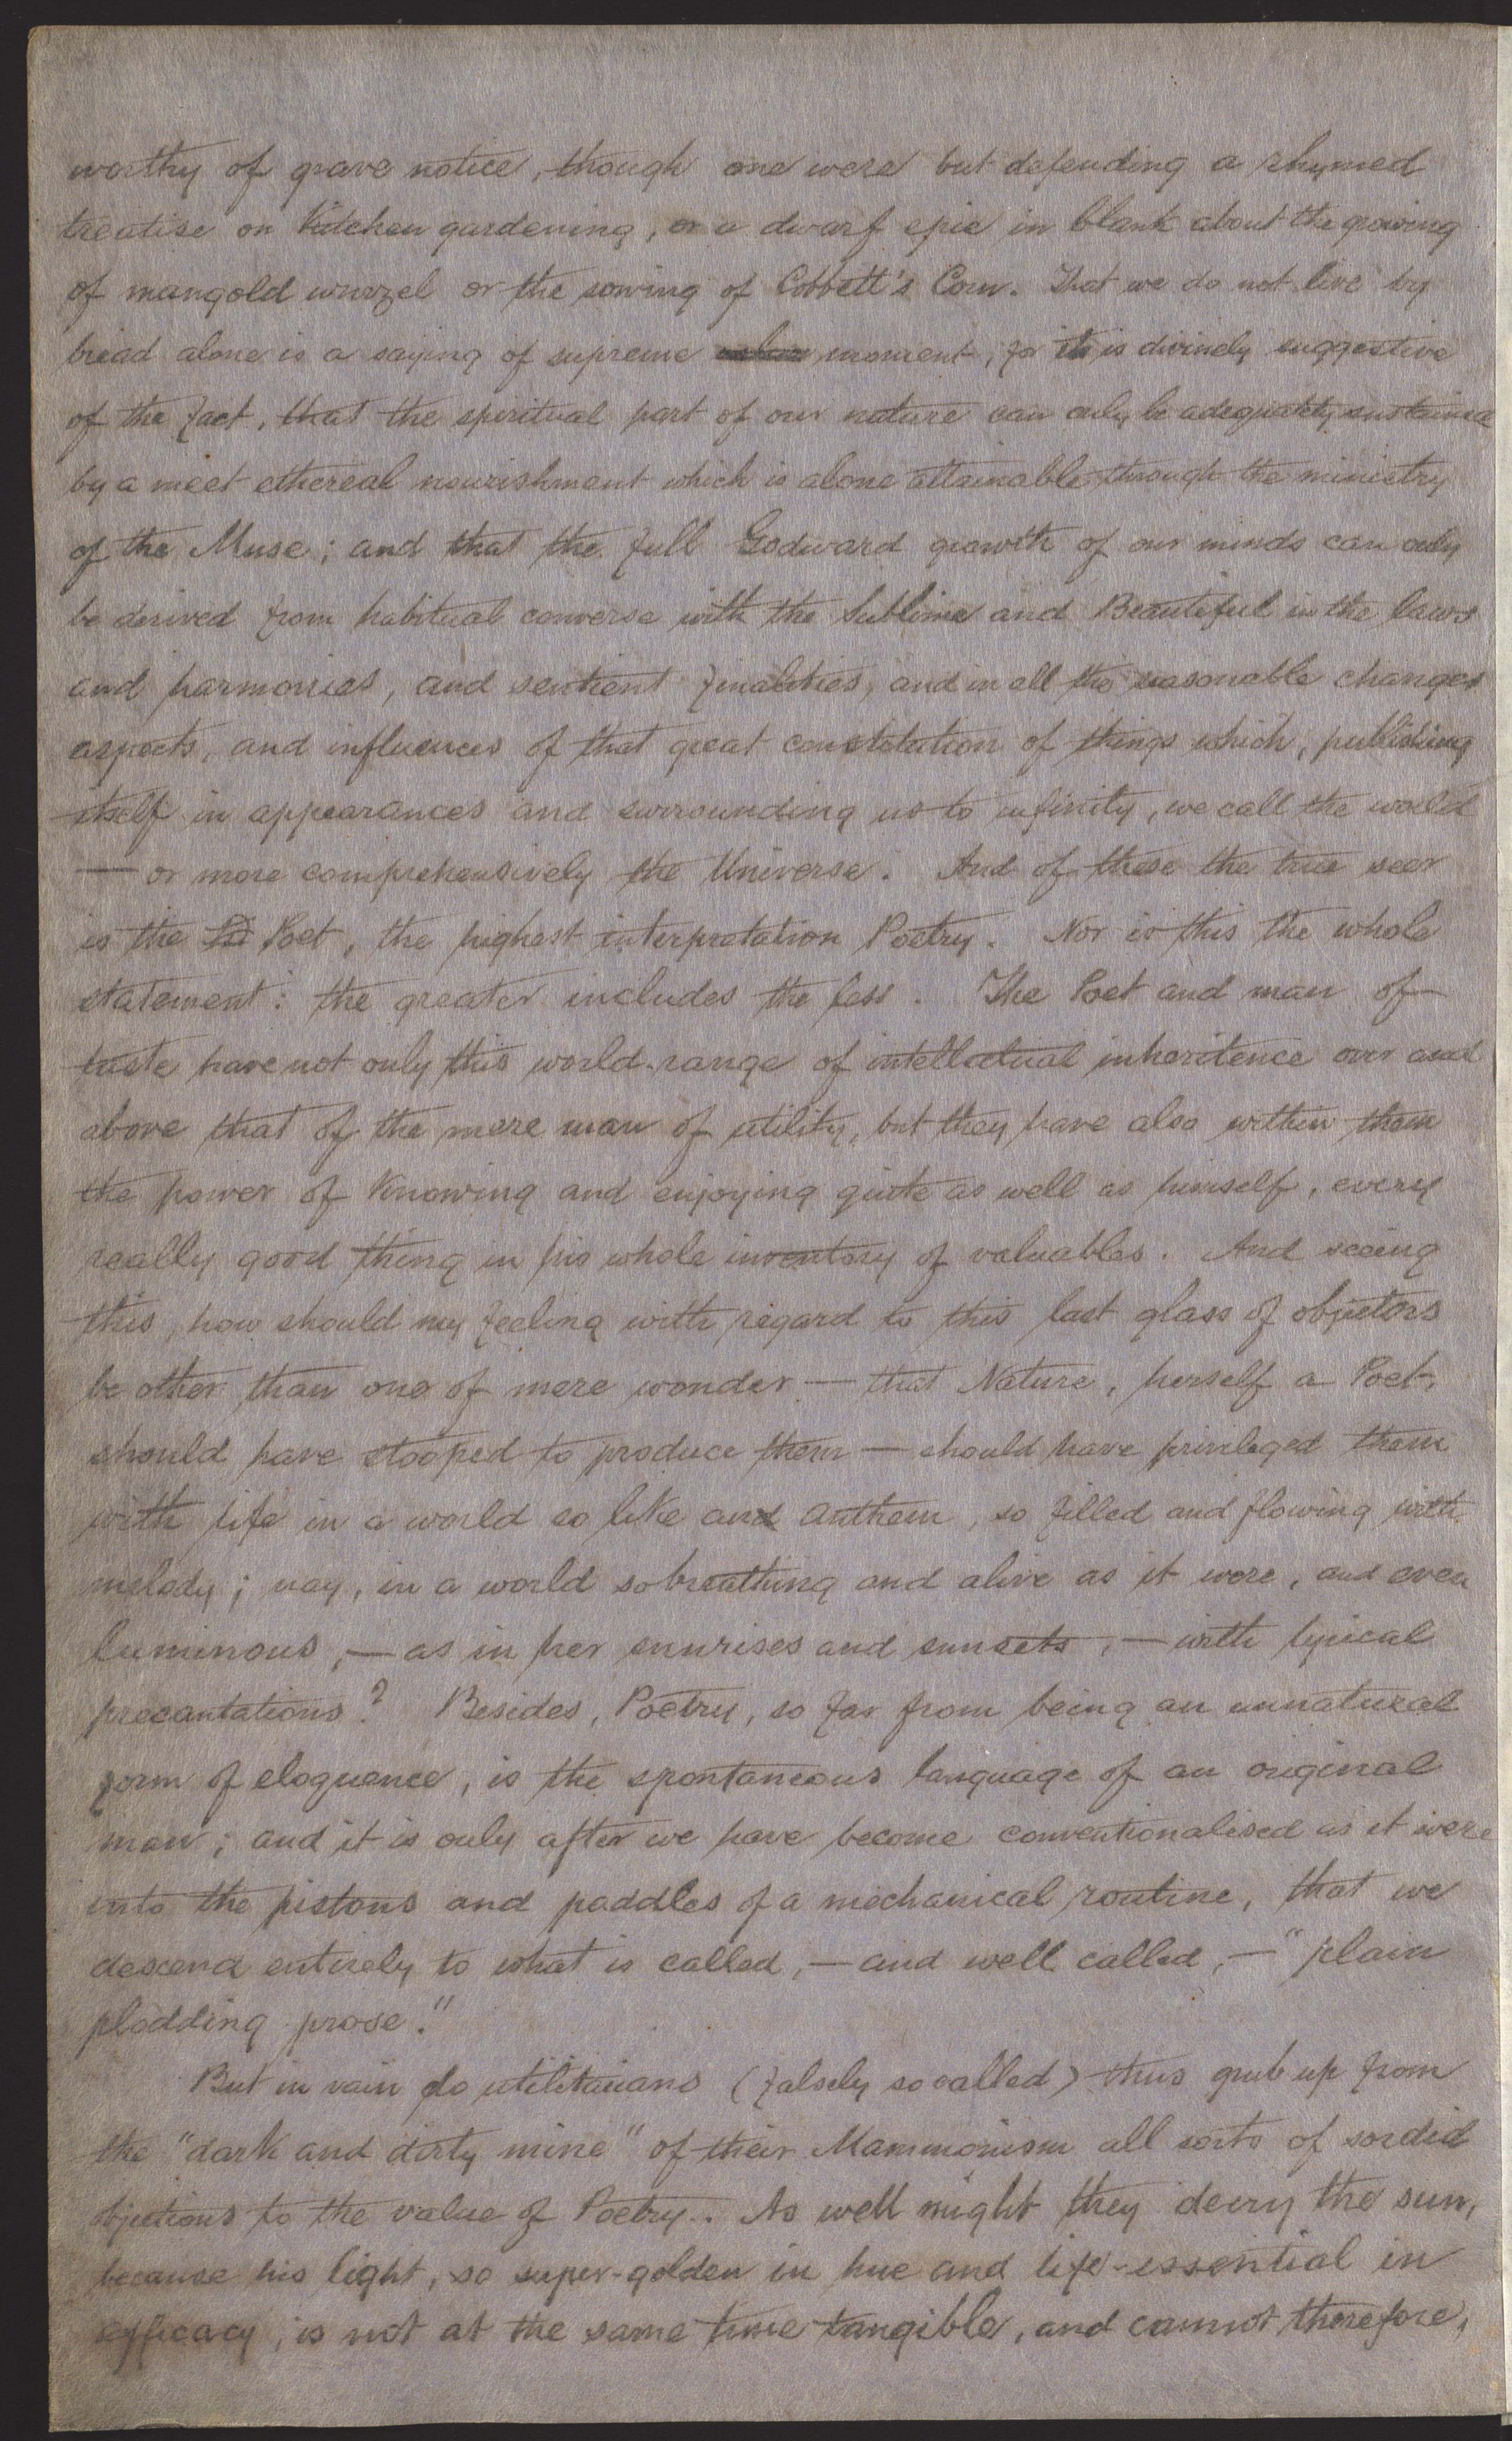 worthy of grave notice, though one were but defending a rhymed
treatise on Kitchen gardening, or a dwarf epic in blank about the growing
of mangold wurzel or the sowing of Cobbett's Corn. That we do not live by
bread alone is a saying of supreme moment, for it is divinely suggestive
of the fact, that the spiritual part of our nature can only be adequately sustained
by a meet ethereal nourishment which is alone attainable through the ministry
of the Muse; and that the full Godward growth of our minds can only
be derived from habitual converse with the Sublime and Beautiful in the laws
and harmonies, and sentient finalities, and in all the seasonable changes
aspects, and influences of that great constitution of things which, publishing
itself in appearances and surrounding us to infinity, we call the world
— or more comprehensively the Universe. And of these the true seer
is the Poet, the highest interpretation Poetry. Nor is this the whole
statement: the greater includes the less. The Poet and man of
taste have not only this world-range of intellectual inheritence over and
above that of the mere man of utility, but they have also within them
the power of Knowing and enjoying quite as well as himself, every
really good thing in his whole inventory of valuables. And seeing
this, how should my feeling with regard to this last glass of objectors
be other than one of mere wonder — that Nature, herself a Poet,
should have stooped to produce them — should have privileged them
with life in a world so like an anthem, so filled and flowing with
melody; nay, in a world so breathing and alive as it were, and even
luminous, — as in her sunrises and sunsets, — with lyrical
precantations? Besides, Poetry, so far from being an unnatural
form of eloquence, is the spontaneous language of an original
man; and it is only after we have become conventionalised as it were
into the pistons and paddles of a mechanical routine, that we
descend entirely to what is called, — and well called, — "plain
plodding prose."
But in vain do utilitarians (falsely so called) thus grub up from
the "dark and dirty mine" of their Mammonism all sorts of sordid
objections to the value of Poetry. As well might they decry the sun,
because his light, so super-golden in hue and life-essential in
efficacy, is not at the same time tangible, and cannot therefore,